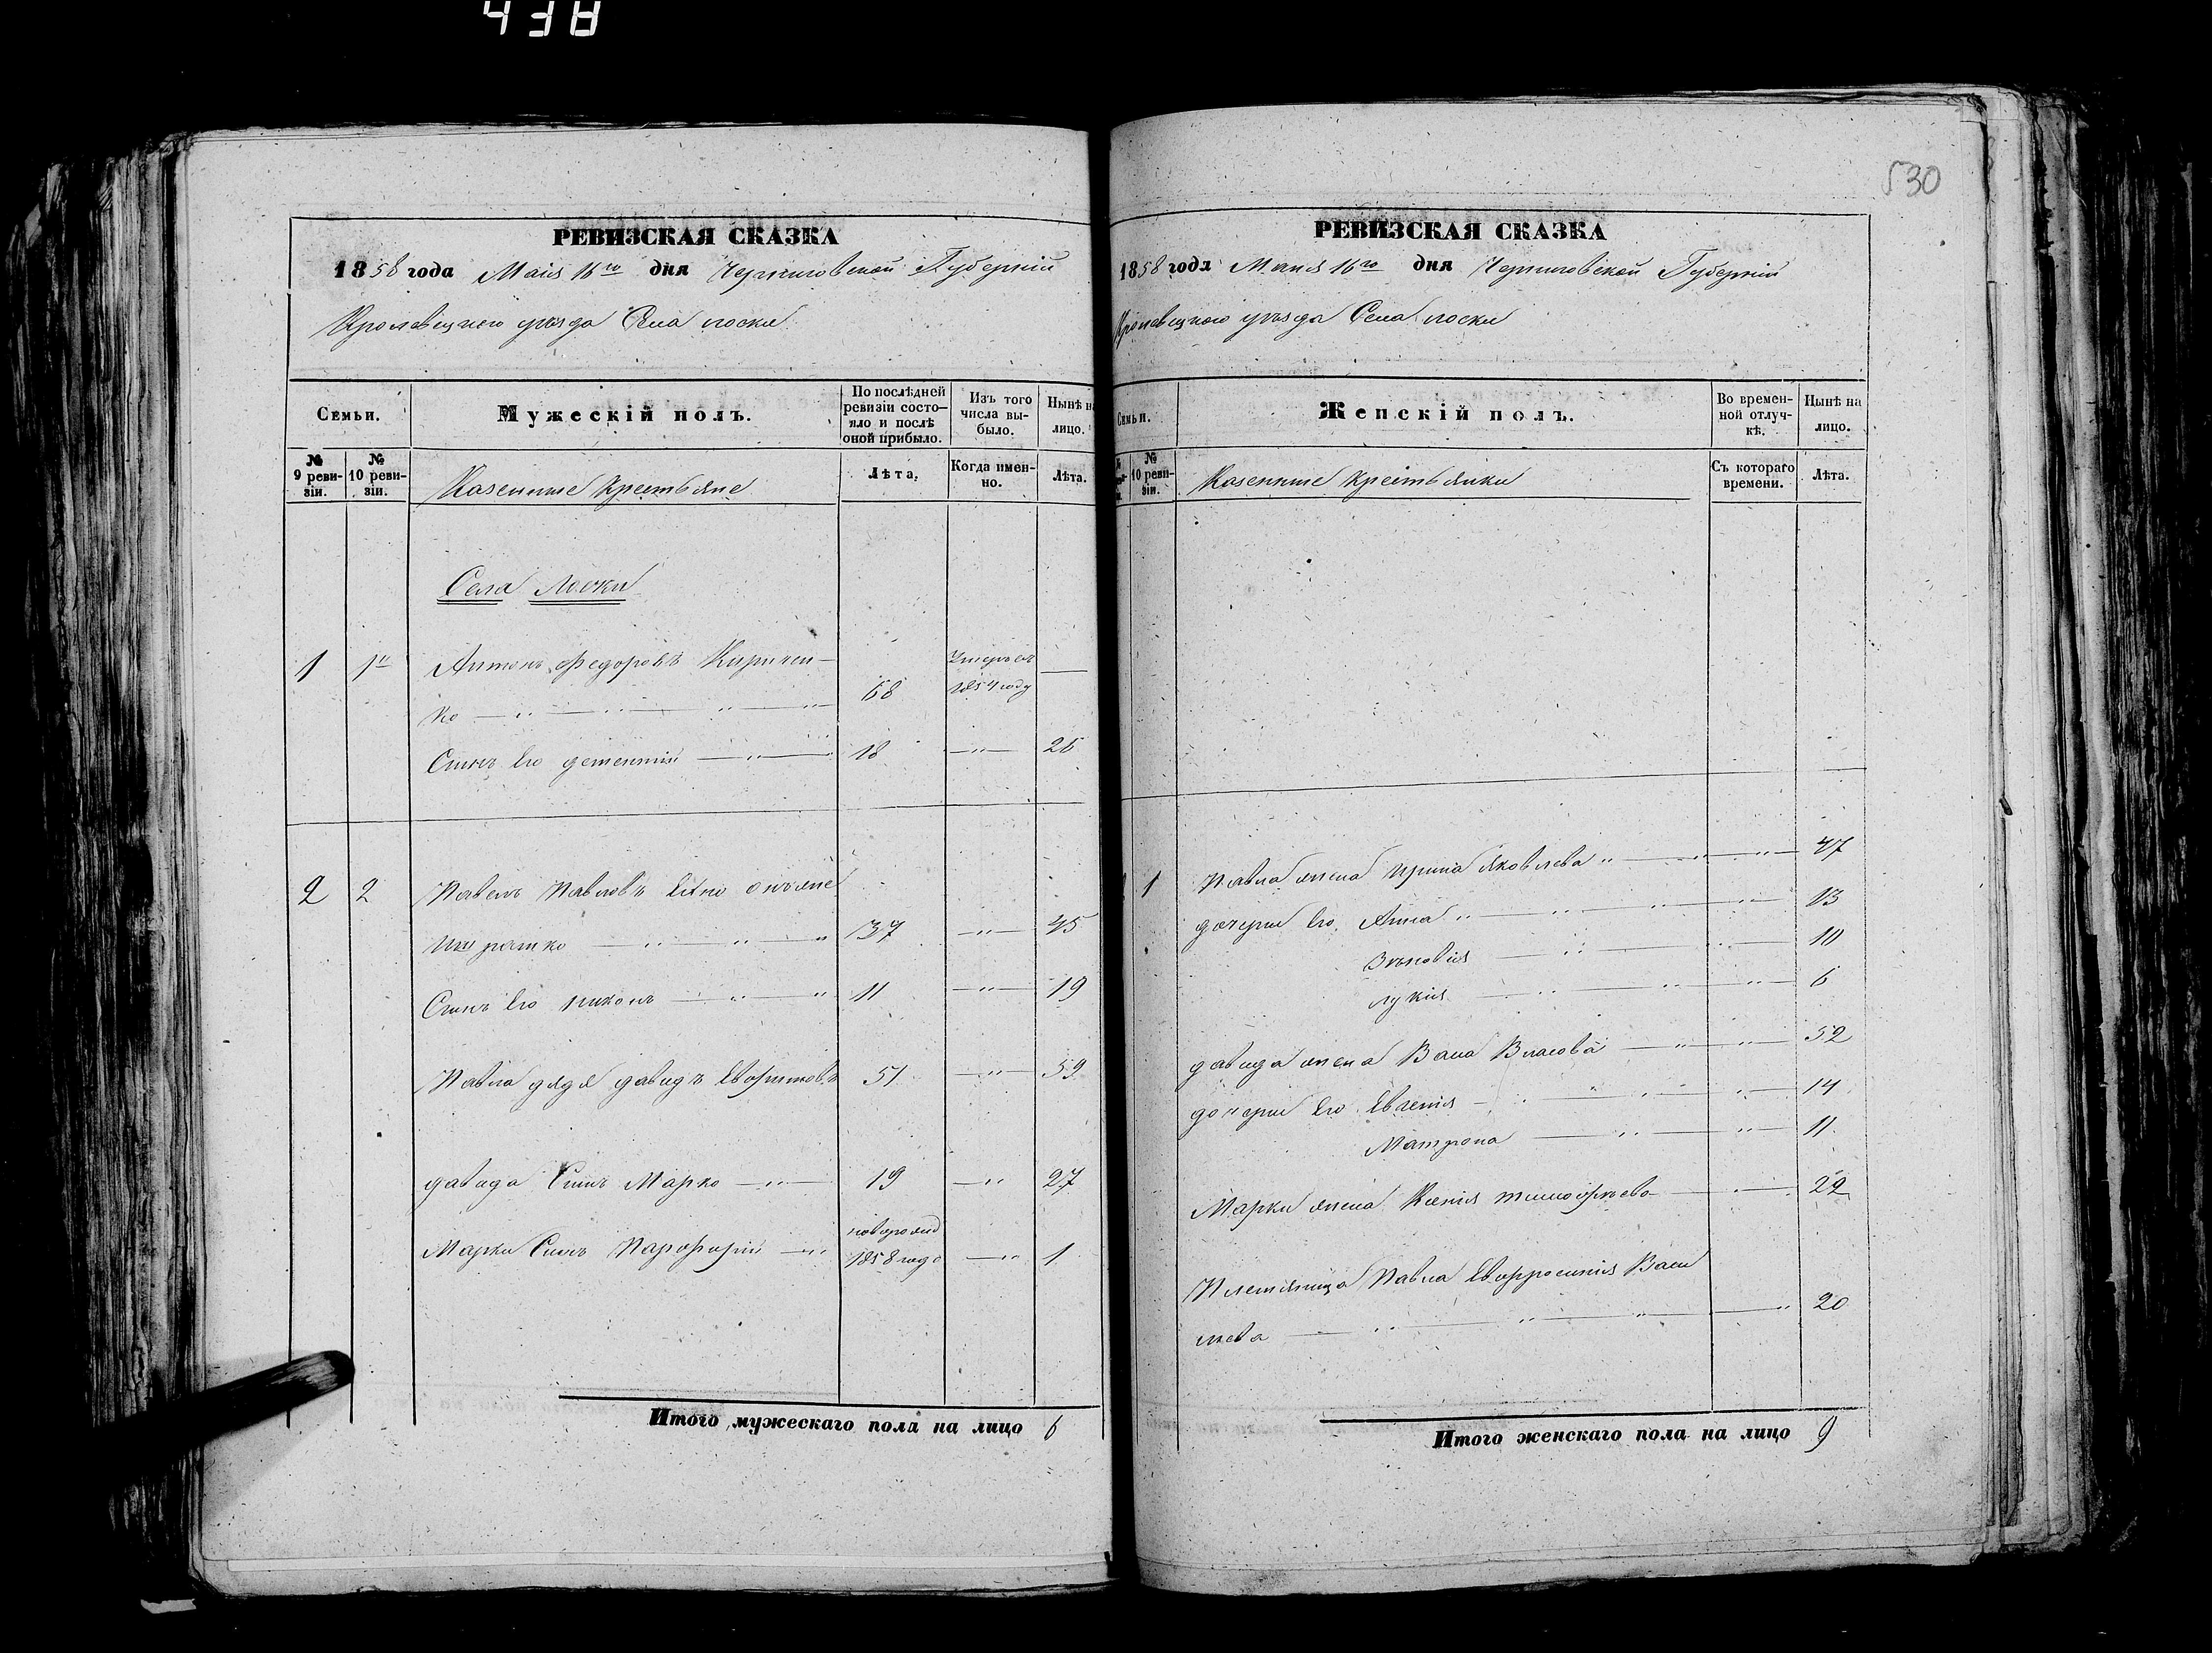 438
530
РЕВИЗСКАЯ СКАЗКА
1858 года Маія 16го дня Черниговской Губерніи
Кролевецкого уезда Села лоски
Семьи.
Мужескій полъ.
По послѣдней ревизіи состояло и послѣ оной прибыло.
Изъ того числа выбыло.
Нынѣ на лицо.
№ 9 ревизіи.
№ 10 ревизіи.
Казенные Крестьяне
Лѣта.
Когда именно.
Лѣта.
Села Лоски
1 1й Антонъ Федоровъ Киричен-
ко 68 Умеръ въ 1854 году
Сынъ Его дементий 18 26
2 2 Павелъ Павловъ онъ же
37 45
Сынъ Его никонъ 11 19
Павла дядя давидъ Евфимовъ 51 59
давида Сынъ Марко 19 27
Марки Сынъ Парфирій новорожд 1858 года 1
Итого мужескаго пола на лицо 6
РЕВИЗСКАЯ СКАЗКА
1858 года Маия 16го дня Черниговской Губерніи
Кролевецкого уезда Села лоски
Семьи.
Женскій полъ.
Во временной отлучкѣ.
Нынѣ на лицо.
№ 10 ревизіи.
Казенные Крестьянки
Съ котораго времени.
Лѣта.
1 Павла жена Ирина Яковлева 47
дочери Его Анна 13
Зѣновія 10
лукия 6
давида жена Васа Власова 52
дочери Его Евгения 14
Матрона 11
Марки жена Ксенія тимофѣева 22
Племяница Павла Евфросинія Васи
льева 20
Итого женскаго пола на лицо 9